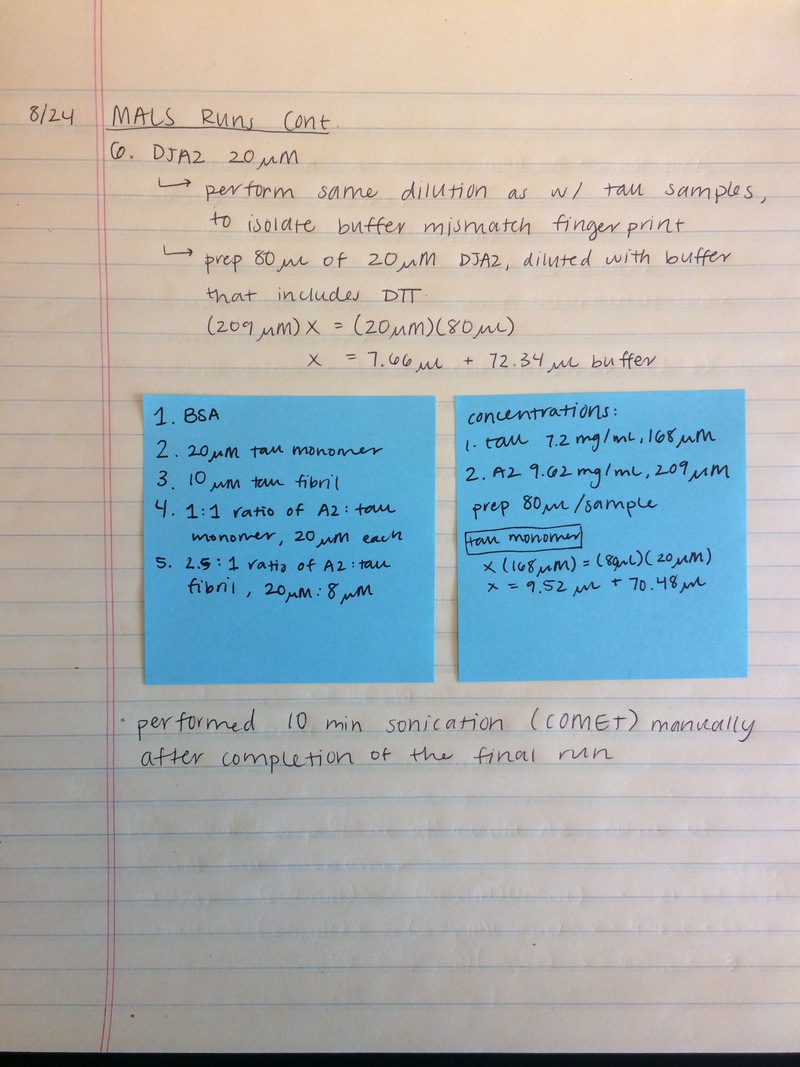 8/24 MALS Runs Cont.
6. DJA2 20 µM
↳ perform same dilution as w/ tau samples,
to isolate buffer mismatch finger print
↳ prep 80 µL of 20 µM DJA2, diluted with buffer
that includes DTT.
(209 µM) X = (20 µM)(80 µL)
X = 7.66 µL + 72.34 µL buffer
1. BSA
2. 20 µM tau monomer
3. 10 µM tau fibril
4. 1:1 ratio of A2: tau
monomer, 20 µM each
5. 2.5:1 ratio of A2: tau
fibril, 20 µM: 8 µM
concentrations:
1. tau 7.2 mg/mL, 168 µM
2. A2 9.62 mg/mL, 209 µM
prep 80 µL/sample
tau monomer
X (168 µM) = (80 µL)(20 µM)
X = 9.52 µL + 70.48 µL
· performed 10 min sonication (COMET) manually
after completion of the final run